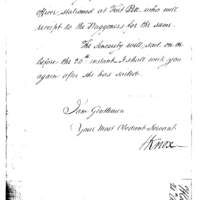 officer, stationed at Fort Pitt, who will
receipt to the Waggoners for the same.
The Sincerity will sail on or
before the 20th instant. I shall write you
again after she has sailed.
I am Gentlemen
Your Most Obedient Servant
H Knox